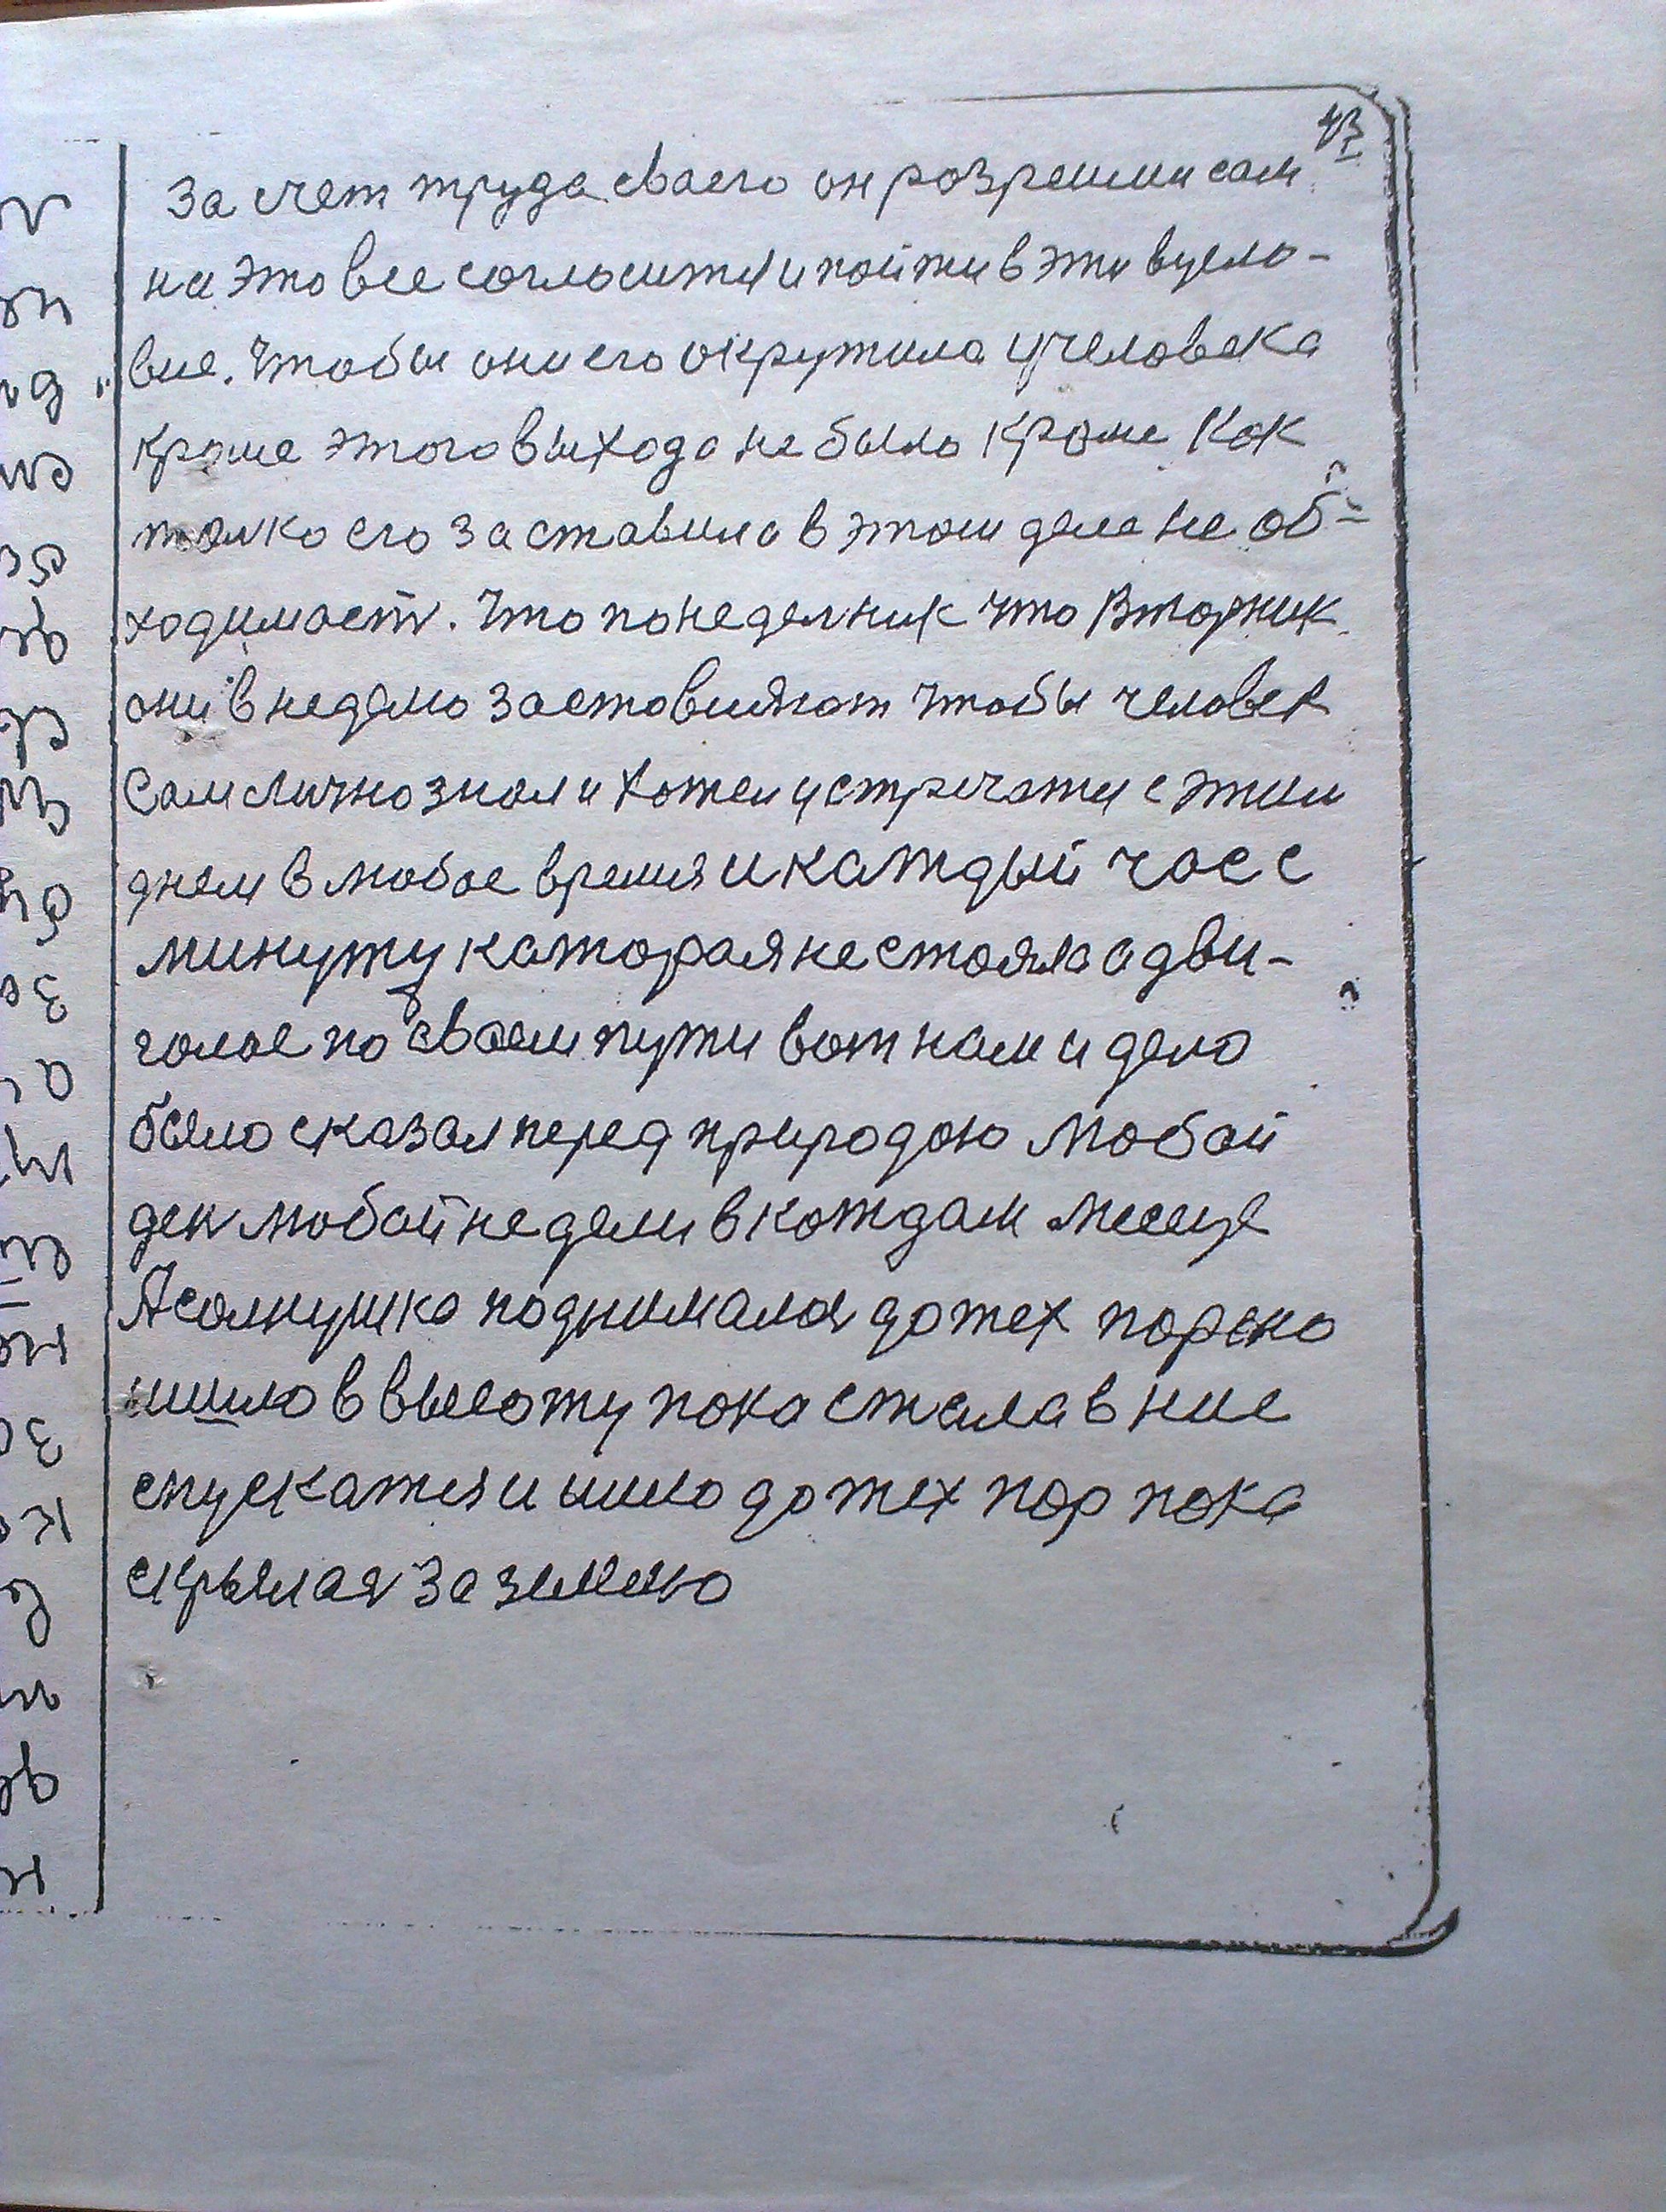 43
За счет труда сваего он розрешил сам
на это все согласится и пойти в эти вусло-
вие. Чтобы они его окружила учеловека
кроме этого выхода не было кроме Как
толко его заставила в этом деле не об-
ходимаст. Что понеделник что Вторник
они в неделю заставляют чтобы человек
Сам лично знал и хотел устречатя с этим
днем в любое время и каждый час с
минуту каторая не стояла а дви-
галас по сваем пути вот нам и дело
было сказал перед природою Любой
ден любой недели в каждам месеце
А солнушко поднималая до тех пор оно
ишло в высоту пока стала в нис
спускатя и ишло до тех пор пока
скрылая за землю